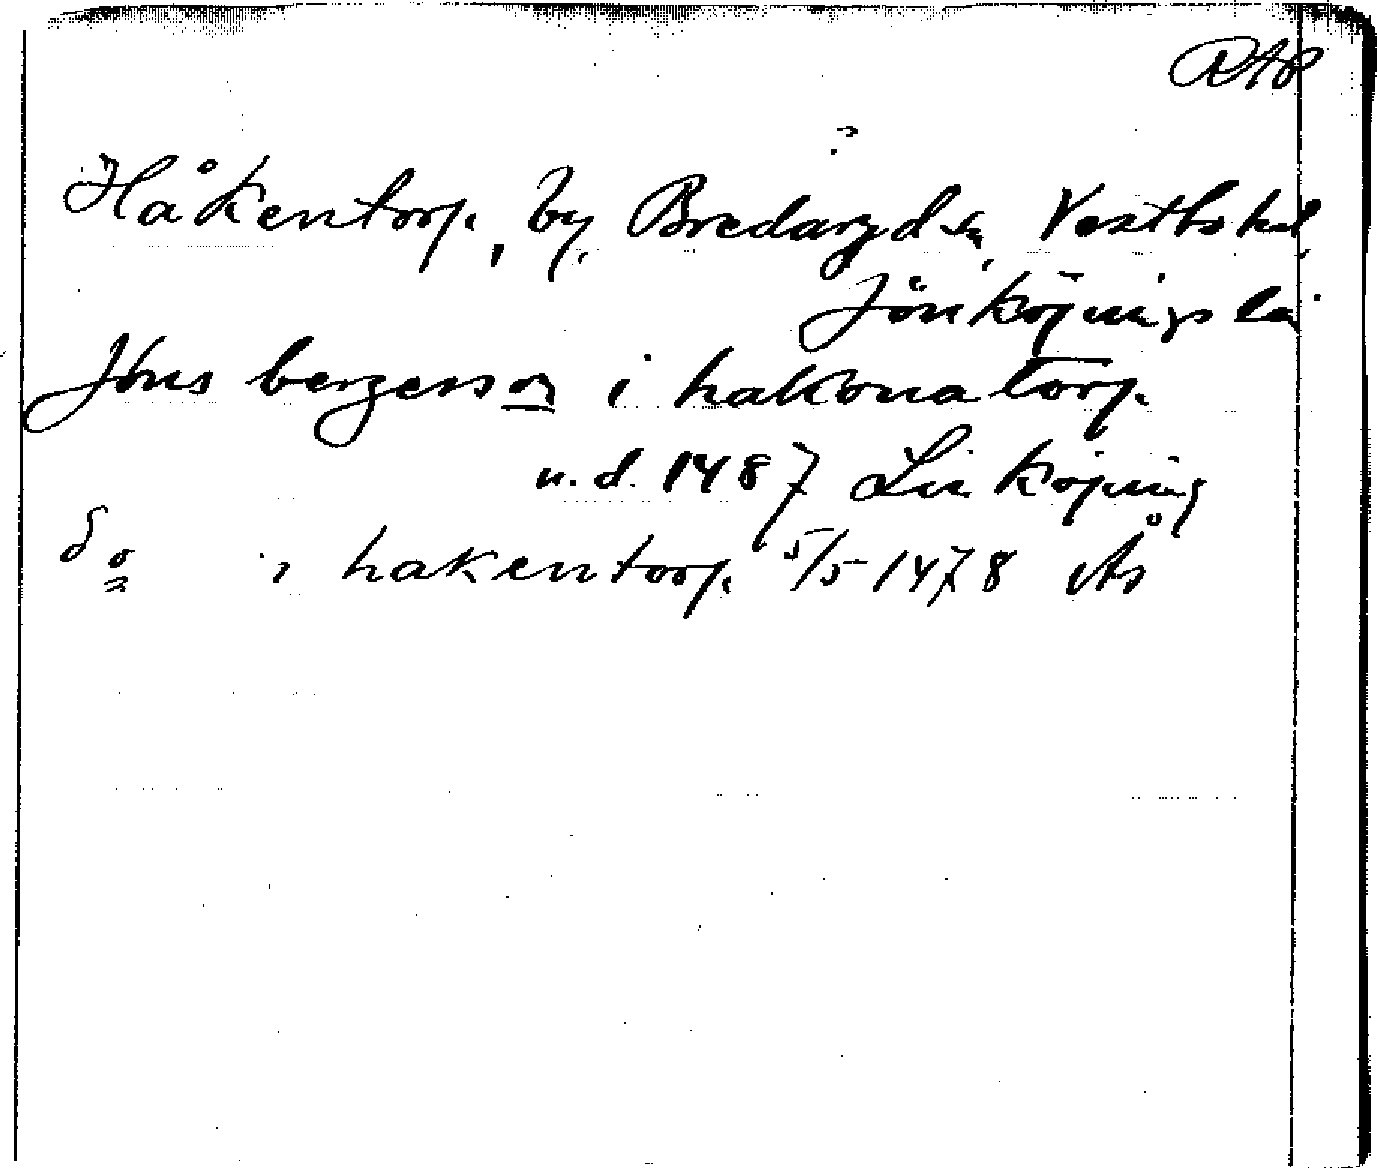 RAP
?
Håkentorp, by, Bredaryd sn, Vestbo hd,
Jönköpings län
Jöns bergersson i hakonatorp.
u.d. 1487 Linköping
do i hakentorp. 5/5 1478 Ås